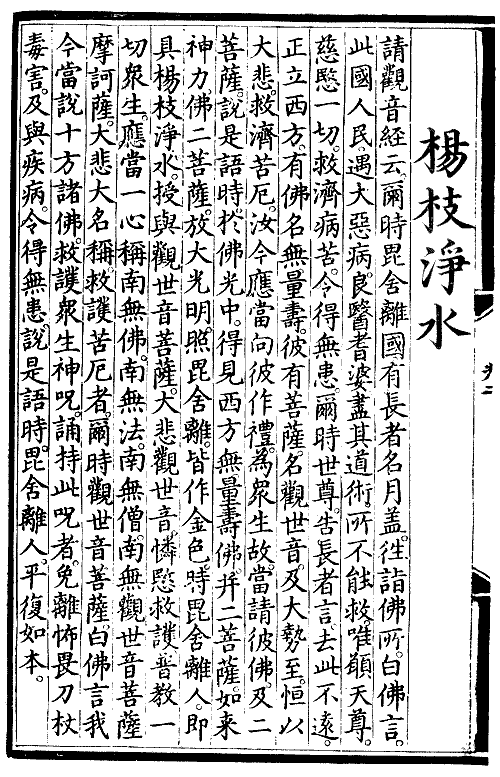 楊枝淨水
請觀音經云。爾時毘舍離國有長者名月盖。徃詣佛所。白佛言。
此國人民遇大惡病。良醫耆婆盡其道術。所不能救。唯願天尊。
慈愍一切。救濟病苦。令得無患。爾時世尊。告長者言。去此不遠。
正立西方。有佛名無量壽。彼有菩薩。名觀世音。及大勢至。恒以
大悲。救濟苦厄。汝今應當向彼作禮。為衆生故。當請彼佛。及二
菩薩。說是語時。於佛光中。得見西方無量壽佛。并二菩薩。如来
神力。佛二菩薩。放大光明。照毘舍離。皆作金色。時毘舍離人。即
具楊枝淨水。授與觀世音菩薩。大悲觀世音。憐愍救護。普教一
切衆生。應當一心稱南無佛。南無法。南無僧。南無觀世音菩薩
摩訶薩。大悲大名稱。救護苦厄者。爾時觀世音菩薩。白佛言。我
今當說十方諸佛。救護衆生神咒。誦持此咒者。免離怖畏刀杖
毒害。及與疾病。令得無患。說是語時。毘舍離人。平復如本。